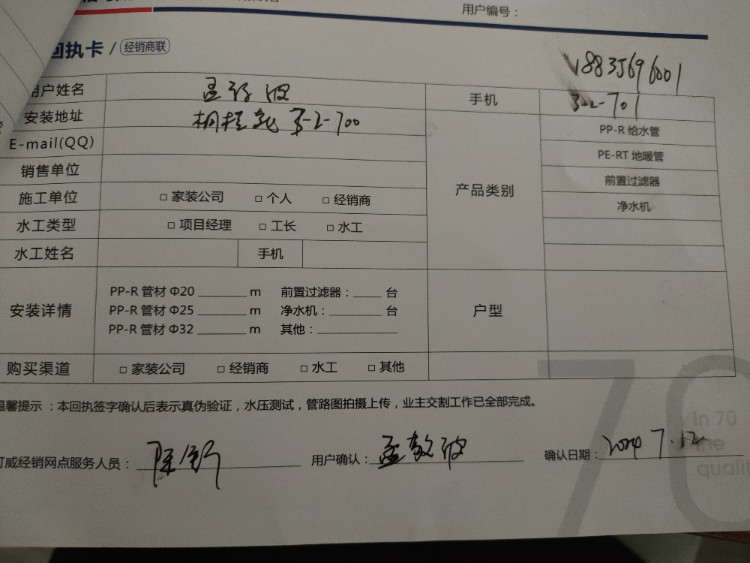 用户编号：
回执卡 / 经销商联
用户姓名 孟 波 手机 18835696001
安装地址 3-2-700 3-2-701
E-mail(QQ)
销售单位
施工单位 □ 家装公司 □ 个人 □ 经销商
水工类型 □ 项目经理 □ 工长 □ 水工
水工姓名 手机
产品类别
PP-R 给水管
PE-RT 地暖管
前置过滤器
净水机
安装详情
PP-R 管材 Φ20 ______ m 前置过滤器：____ 台
PP-R 管材 Φ25 ______ m 净水机：____ 台
PP-R 管材 Φ32 ______ m 其他：______
户型
购买渠道 □ 家装公司 □ 经销商 □ 水工 □ 其他
温馨提示 ：本回执签字确认后表示真伪验证，水压测试，管路图拍摄上传，业主交割工作已全部完成。
威经销网点服务人员： 陈 用户确认：孟 波 确认日期：2024 7.12
70
In 70
the
qualit